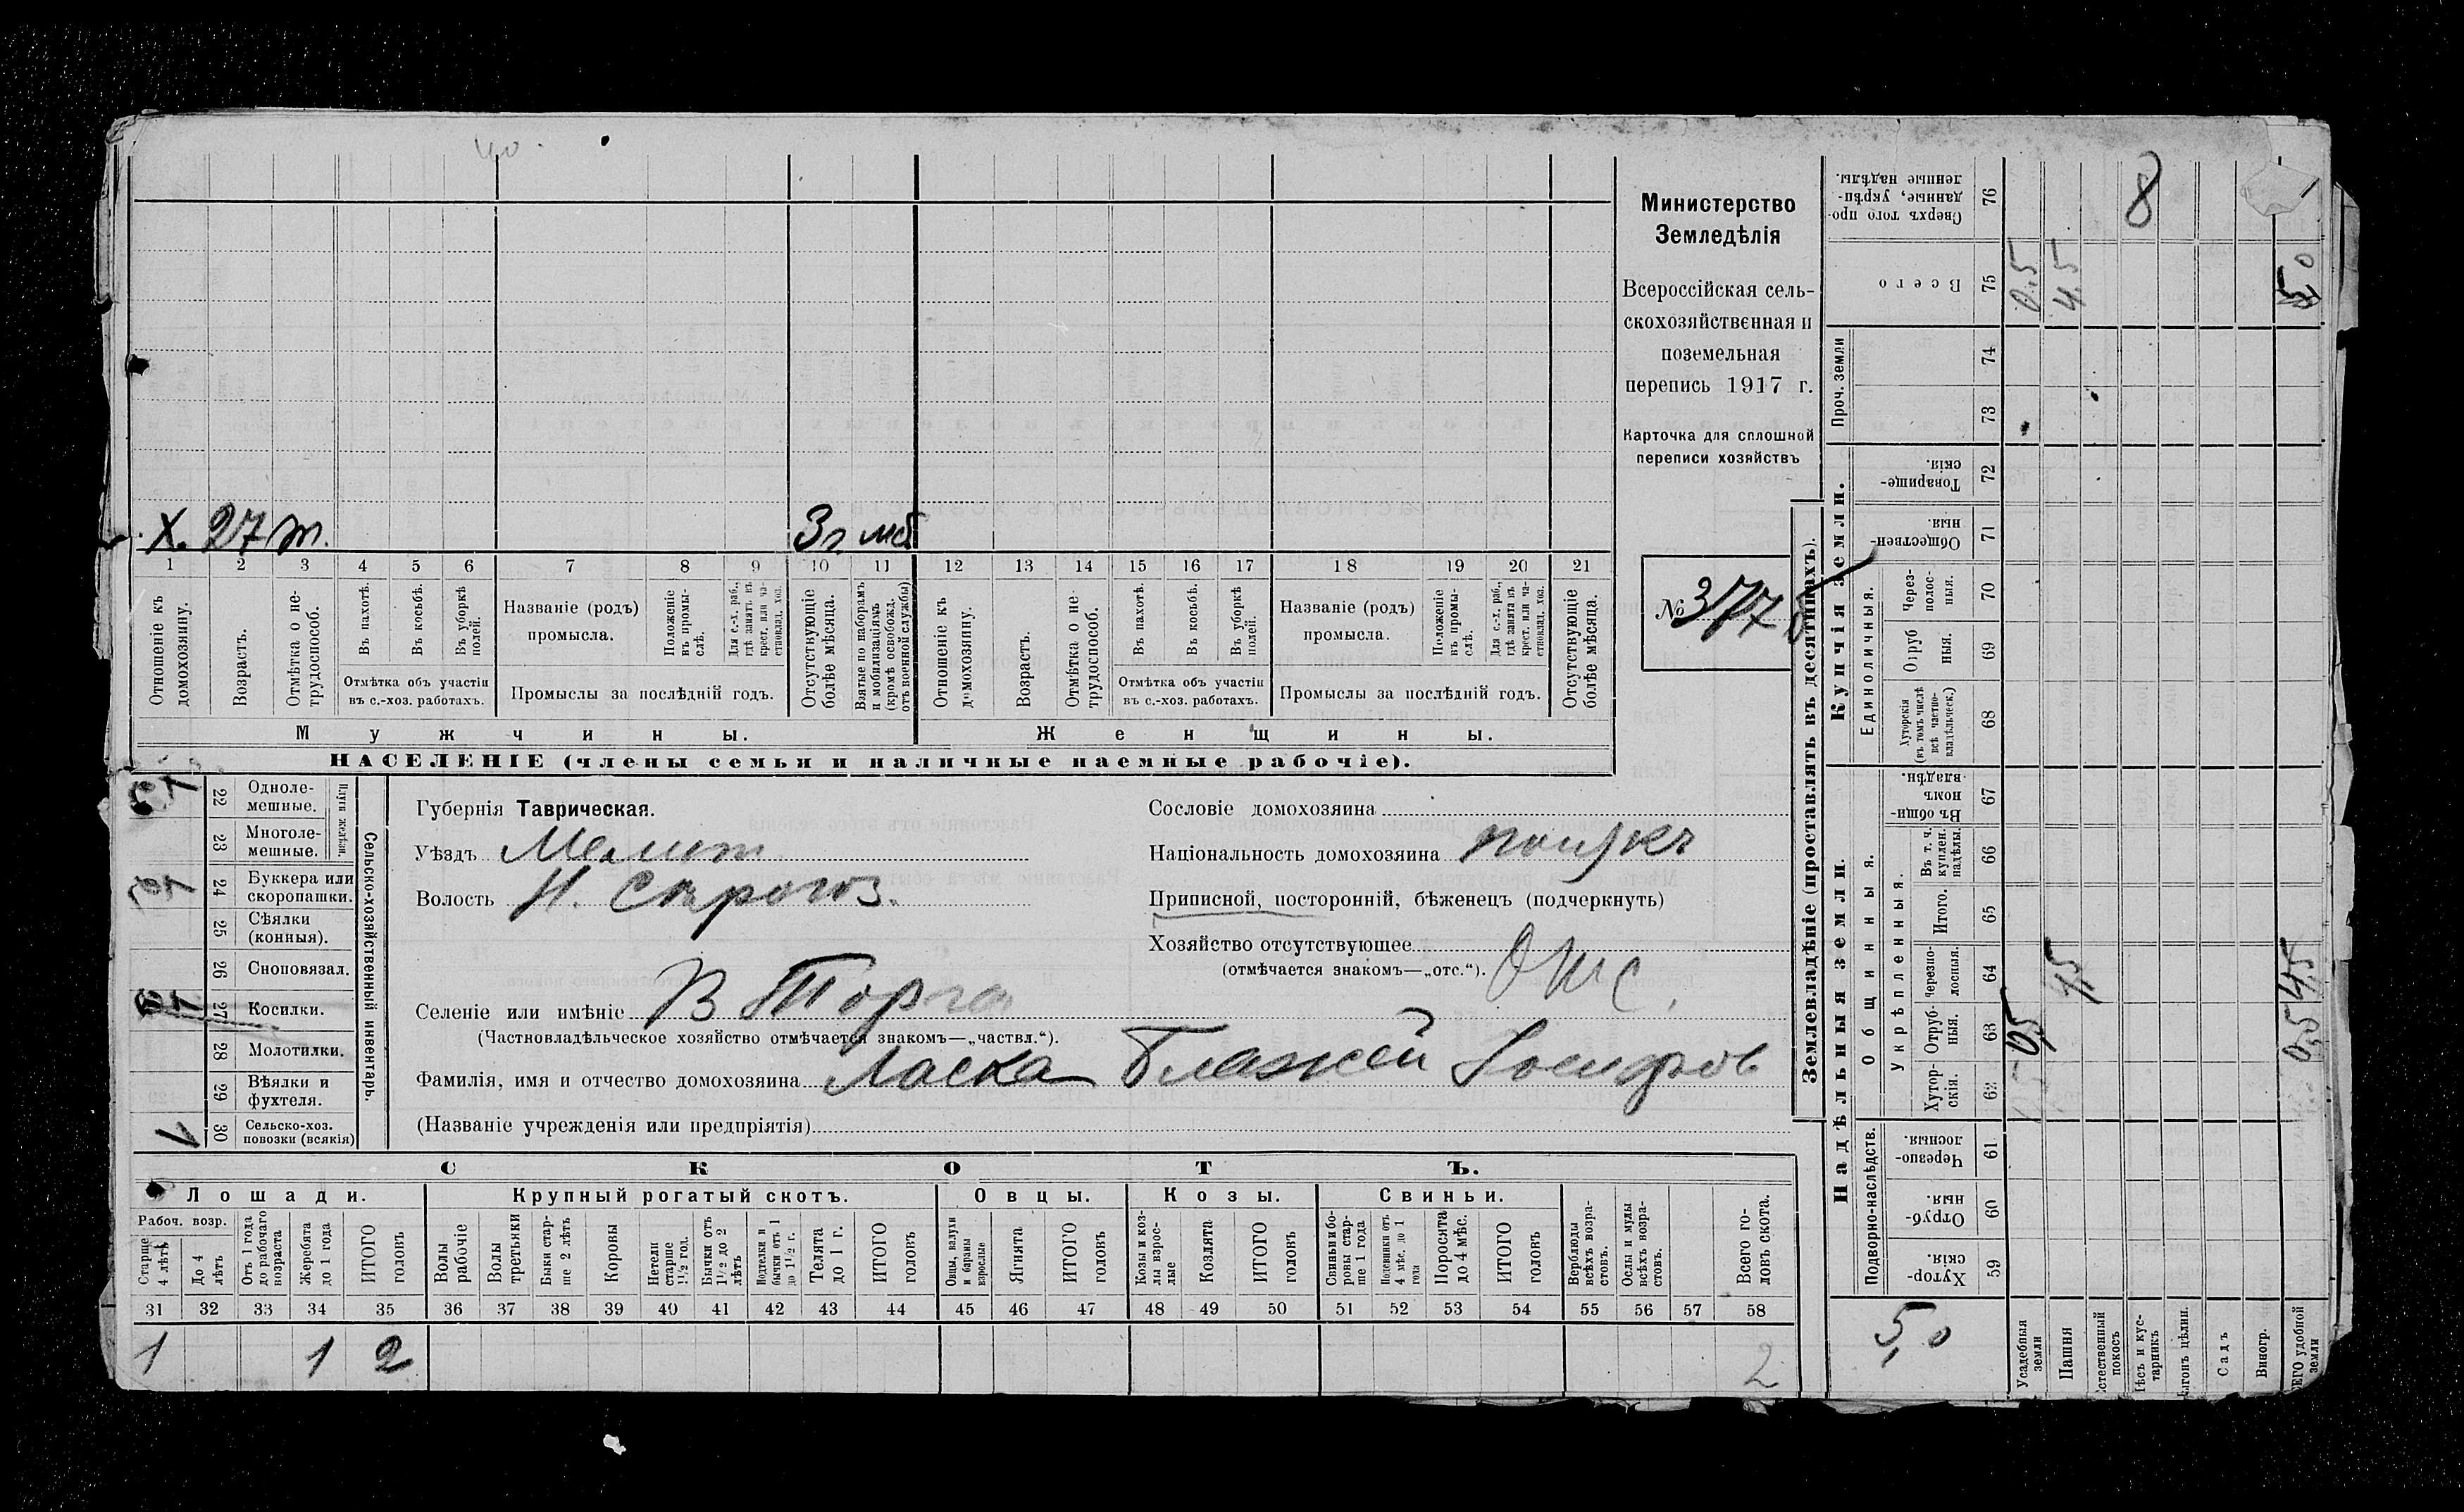 40.
Министерство
Земледѣлія
Всероссійская сель-
скохозяйственная и
поземельная
перепись 1917 г.
Карточка для сплошной
переписи хозяйствъ
№ 377
Х. 27 т. 3 г. мб.
1 2 3 4 5 6 7 8 9 10 11 12 13 14 15 16 17 18 19 20 21
Отношеніе къ домохозяину.
Возрастъ.
Отмѣтка о не-трудоспособ.
Въ пахотѣ.
Въ косьбѣ.
Въ уборкѣ полей.
Отмѣтка объ участіи
въ с.-хоз. работахъ.
Названіе (родъ)
промысла.
Положеніе въ промы-слѣ.
Для с.-х. раб., гдѣ занятъ въ крест. или ча-стновлад. хоз.
Промыслы за послѣдній годъ.
Отсутствующіе болѣе мѣсяца.
Взятые по наборамъ и мобилизаціямъ (кромѣ освобожд. отъ военной службы)
Отношеніе къ домохозяину.
Возрастъ.
Отмѣтка о не-трудоспособ.
Въ пахотѣ.
Въ косьбѣ.
Въ уборкѣ полей.
Отмѣтка объ участіи
въ с.-хоз. работахъ.
Названіе (родъ)
промысла.
Положеніе въ промы-слѣ.
Для с.-х. раб., гдѣ занята въ крест. или ча-стновлад. хоз.
Промыслы за послѣдній годъ.
Отсутствующіе болѣе мѣсяца.
Мужчины.
Женщины.
НАСЕЛЕНІЕ (члены семьи и наличные наемные рабочіе).
Сельско-хозяйственный инвентарь.
Плуги желѣзн.
22 Одноле-мешные.
23 Многоле-мешные.
24 Буккера или скоропашки.
25 Сѣялки (конныя).
26 Сноповязал.
27 Косилки.
28 Молотилки.
29 Вѣялки и фухтеля.
30 Сельско-хоз. повозки (всякія)
Губернія Таврическая.
Уѣздъ Мелит
Волость Н. Строгоз.
Селеніе или имѣніе В Торга
(Частновладѣльческое хозяйство отмѣчается знакомъ—„частвл.“).
Фамилія, имя и отчество домохозяина Ласка Блажей Іосифов
(Названіе учрежденія или предпріятія)
Сословіе домохозяина
Національность домохозяина полякъ
Приписной, посторонній, бѣженецъ (подчеркнуть)
Хозяйство отсутствующее
(отмѣчается знакомъ—„отс.“). Отс.
СКОТЪ.
Лошади. Крупный рогатый скотъ. Овцы. Козы. Свиньи.
Рабоч. возр.
Старше 4 лѣтъ
До 4 лѣтъ
Отъ 1 года до рабочаго возраста
Жеребята до 1 года
ИТОГО головъ
Волы рабочіе
Волы третьяки
Быки стар-ше 2 лѣтъ
Коровы
Нетели старше 1½ год.
Бычки отъ 1½ до 2 лѣтъ
Подтелки и бычки отъ 1 до 1½ г.
Телята до 1 г.
ИТОГО головъ
Овцы, валухи и бараны взрослые
Ягнята
ИТОГО головъ
Козы и коз-лы взрос-лые
Козлята
ИТОГО головъ
Свиньи и бо-ровы стар-ше 1 года
Подсвинки отъ 4 мѣс. до 1 года
Поросята до 4 мѣс.
ИТОГО головъ
Верблюды всѣхъ возра-стовъ.
Ослы и мулы всѣхъ возра-стовъ.
Всего го-ловъ скота.
31 32 33 34 35 36 37 38 39 40 41 42 43 44 45 46 47 48 49 50 51 52 53 54 55 56 57 58
1 1 2 2
Землевладѣніе (проставлять въ десятинахъ).
Купчія земли.
Надѣльныя земли.
Проч. земли
Единоличныя.
Общинныя.
Укрѣпленныя.
Подворно-наслѣдств.
Сверхъ того про-данные, укрѣп-ленные надѣлы. 76
Всего 75
74
73
Товарище-скія. 72
Обществен-ныя. 71
Через-полос-ныя. 70
Отруб ныя. 69
Хуторскія (въ томъ числѣ всѣ частно-владѣльческ.) 68
Въ общи-номъ владѣн. 67
Въ т. ч. куплен. надѣлы. 66
Итого. 65
Черезпо-лосныя. 64
Отруб-ныя. 63
Хутор-скія. 62
Черезпо-лосныя. 61
Отруб-ныя. 60
Хутор-скія. 59
8
0.5
4.5
5,0
4,5
0,5
0,5 4,5
5,0
Усадебныя земли
Пашня
стественный покосъ
Лѣсъ и кус-тарникъ
ыгонъ цѣлин.
Садъ
Виногр.
ЕГО удобной земли